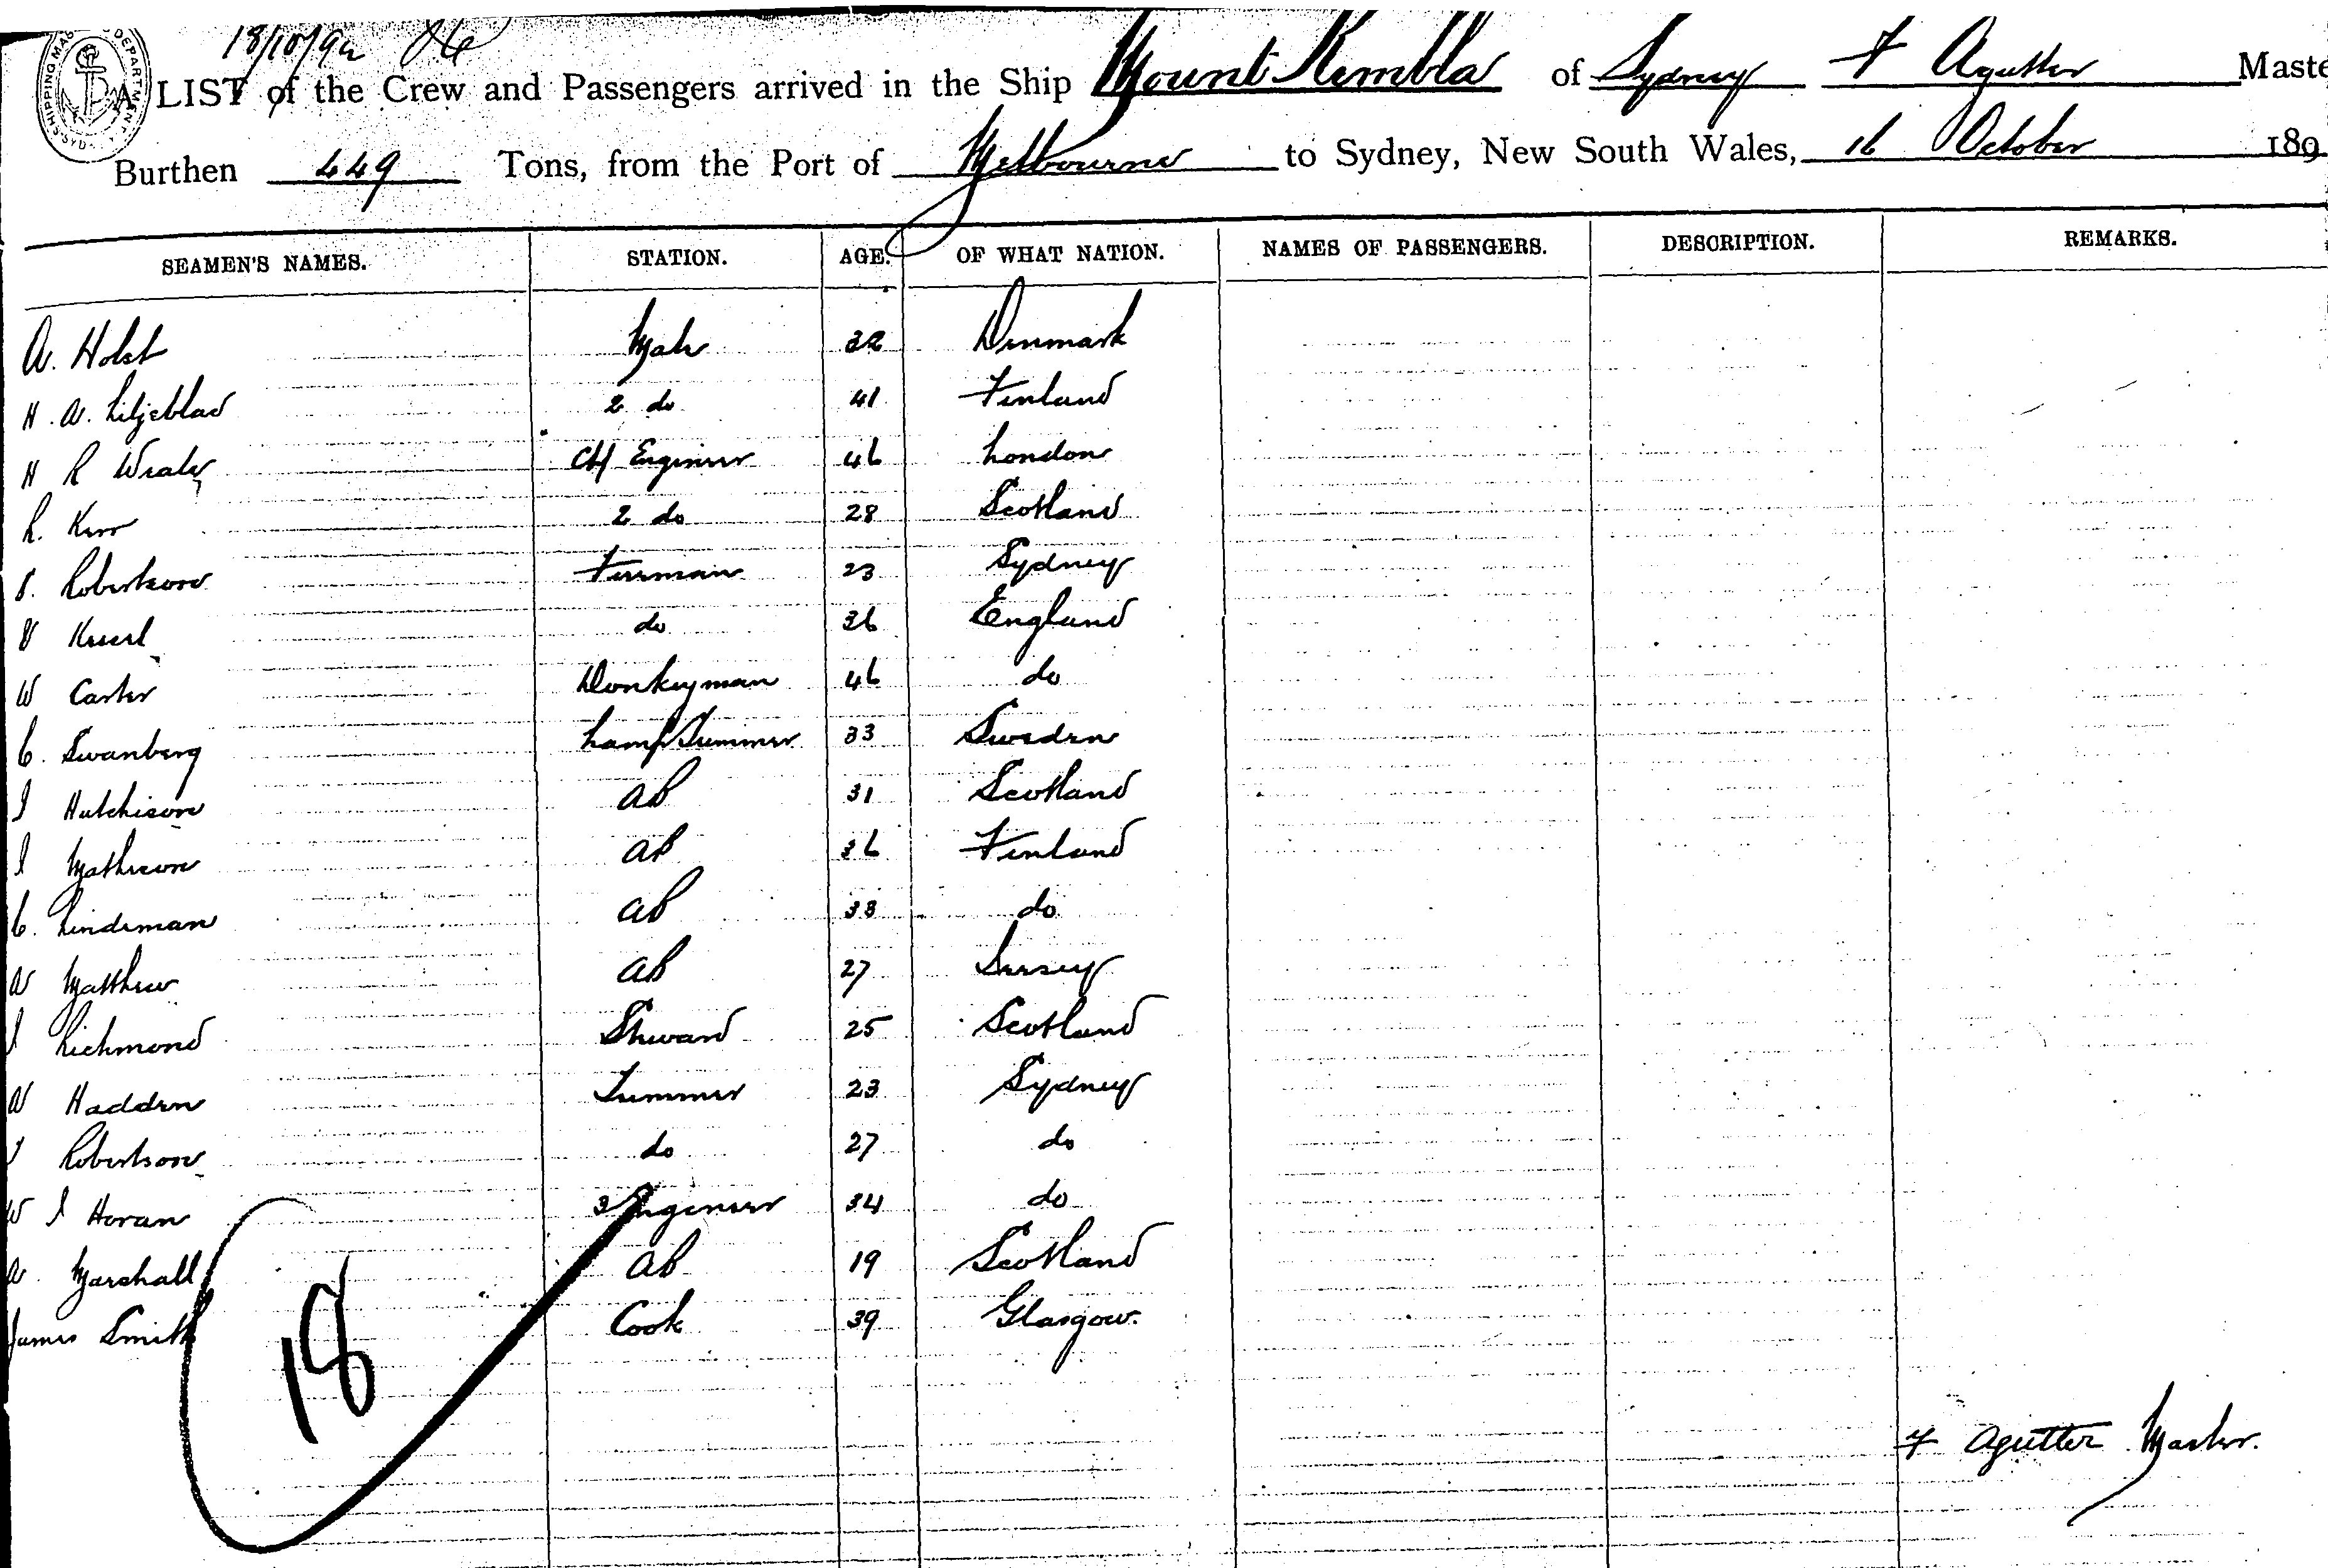 SHIPPING MAS DEPARTMENT SYD
18/10/92
A LIST of the Crew and Passengers arrived in the Ship Mount Kembla of Sydney F Agutter Maste
Burthen 449 Tons, from the Port of Melbourne to Sydney, New South Wales, 16 October 189
SEAMEN'S NAMES. STATION. AGE. OF WHAT NATION. NAMES OF PASSENGERS. DESCRIPTION. REMARKS.
A. Holst Mate 32 Denmark
H. A. Liljeblad 2 do 41 Finland
H R Wealey Chf Engineer 46 London
R. Kerr 2 do 28 Scotland
S. Robertson Fireman 23 Sydney
do 36 England
W Carter Donkeyman 46 do
C. Swanberg Lamp Trimmer 33 Sweden
J Hutchison AB 31 Scotland
J Mathieson AB 36 Finland
C. Lindeman AB 33 do
A Matthew AB 27 Jersey
J Richmond Steward 25 Scotland
A Hadden Trimmer 23 Sydney
J Robertson do 27 do
W J Horan 3 Engineer 34 do
A. Marshall AB 19 Scotland
James Smith Cook 39 Glasgow.
18
F Agutter Master.